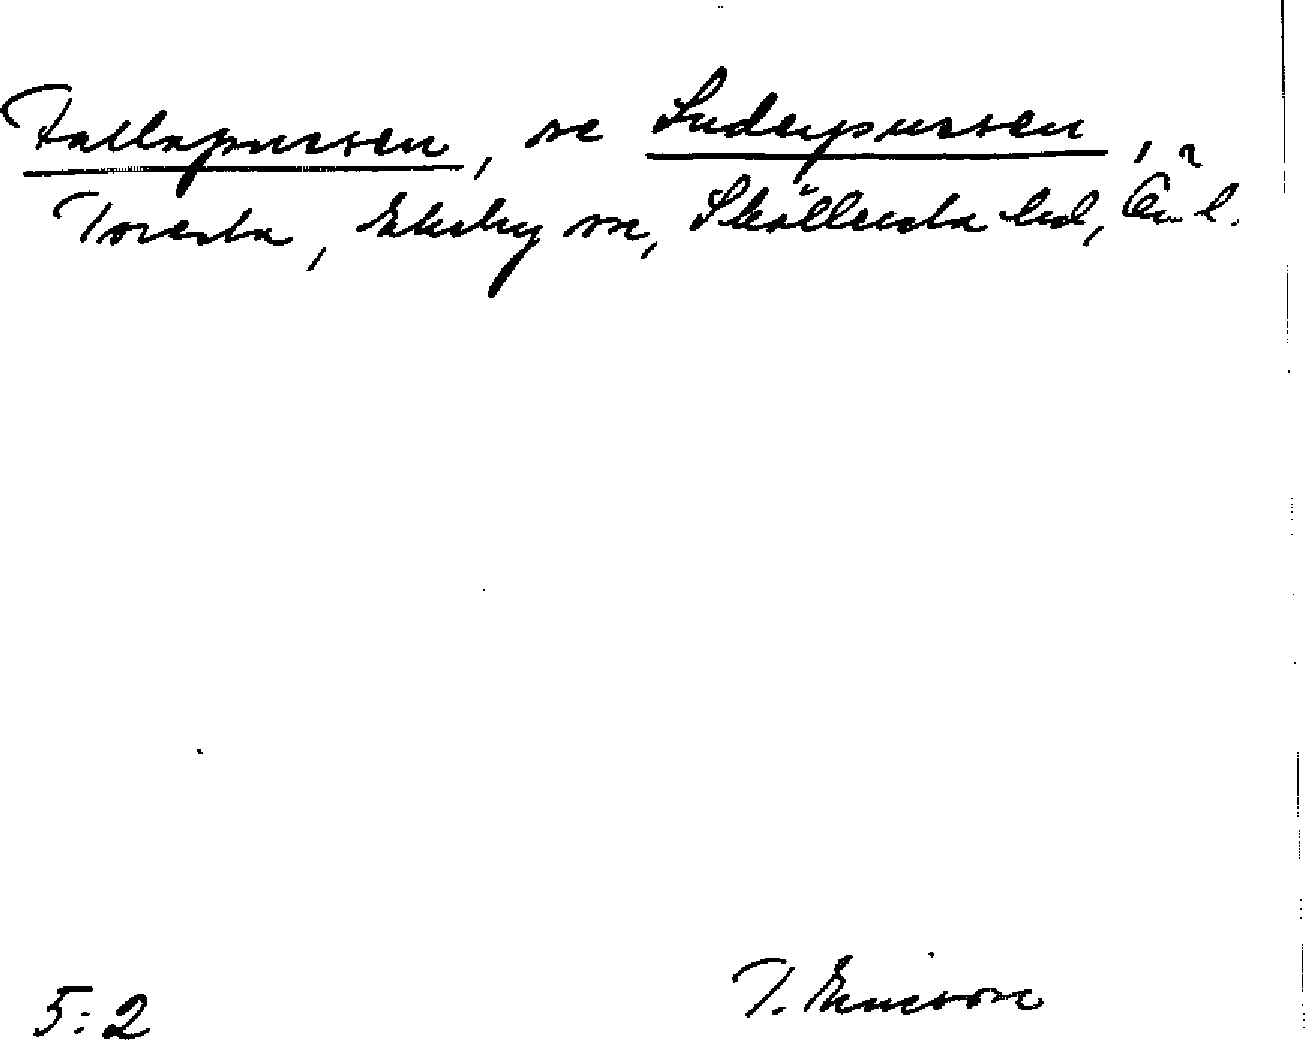 Fallapussen, se Suderpussen,
Toresta, Ekeby sn, Sköllersta hd, Ö. l.
5:2 T. Ericsson